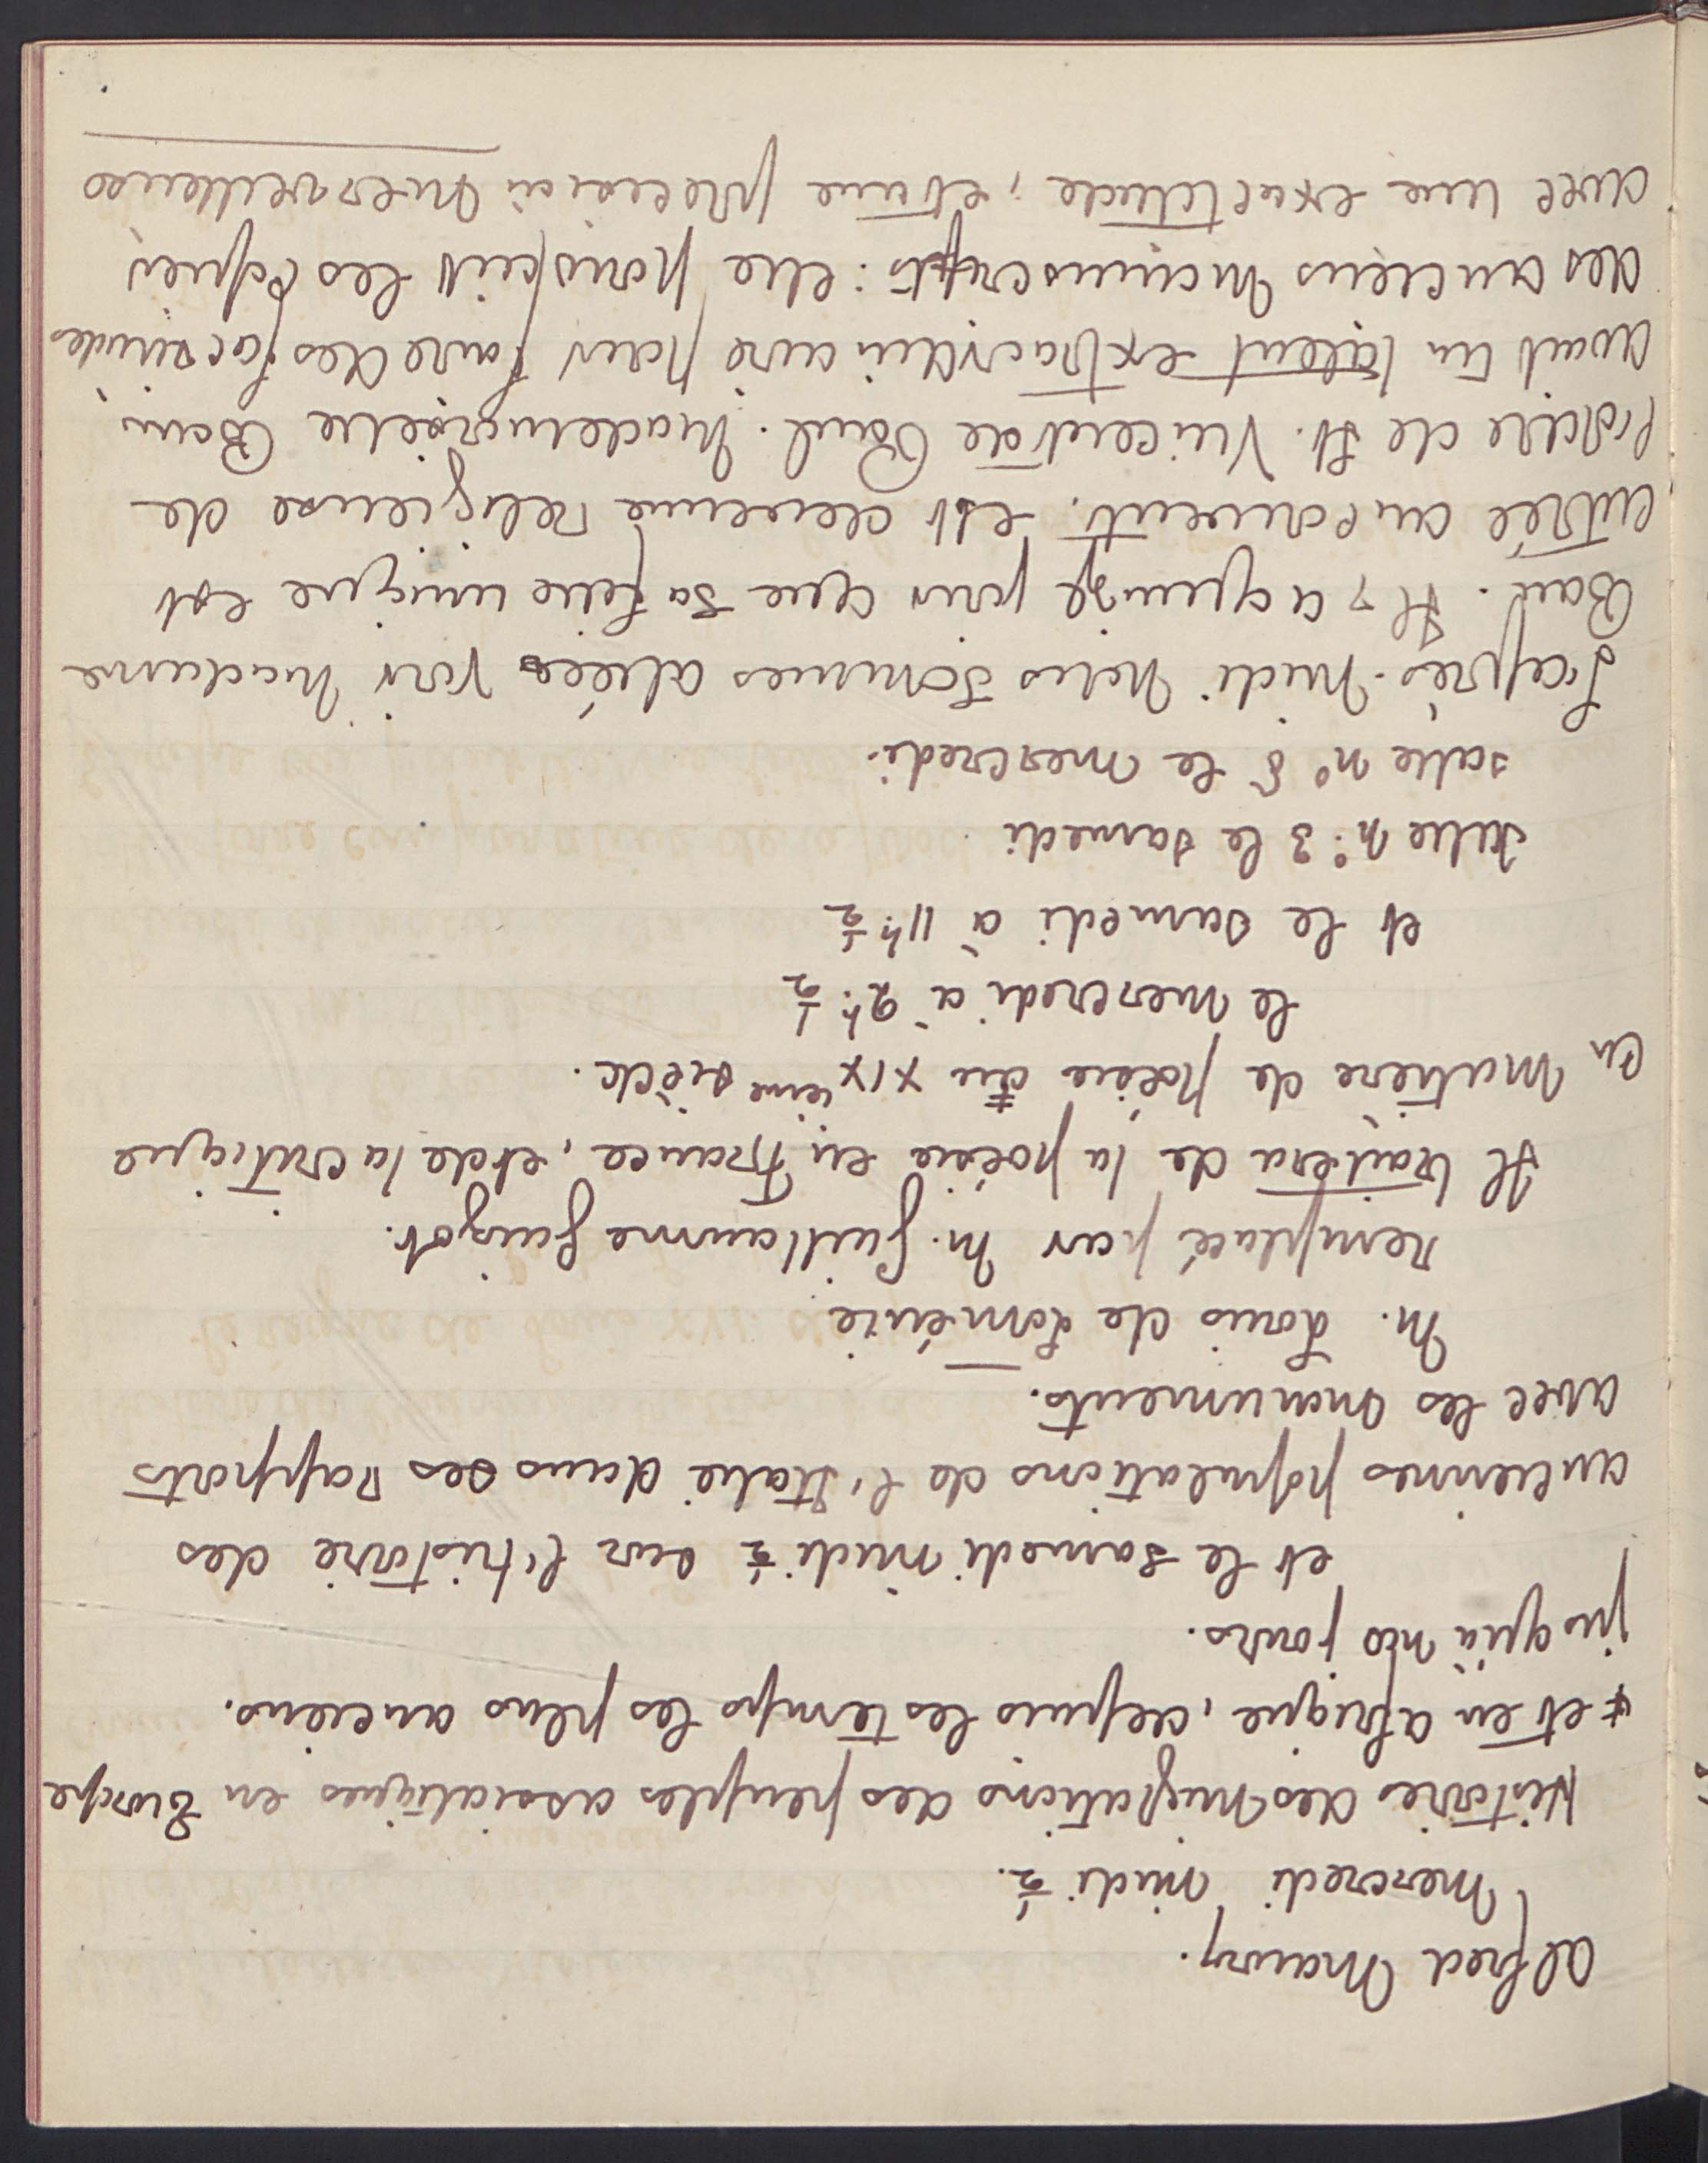 Alfred Maury.
Mercredi midi ½.
Histoires des migrations des peuples assiatiques en Europe
et en afrique, depuis les temps les plus anciens.
jusqu'à nos jours.
et le samedi midi ½ sur l'histoire des
anciennes populations de l'Italie dans ses rapports
avec les monuments.
M. Louis de Loménie
remplacé par M. Guillaume Guizot.
Il traitera de la poésie en France, et de la critique
en matière de poésie au XIXième siècle.
le mercredi à 2h. ½
et le samedi à 11h. ½
salle n°. 3 le samedi
salle n° 5 le mercredi.
L'après-midi nous sommes allées voir madame
Bail. Il y a quinze jours que sa fille unique est
entrée au couvent. est devenue religieuse de
l'ordre de St. Vincent de Paul. Mademoiselle Bail
avait un talent extraordinaire pour faire des facsimiles
des anciens manuscripts: elle faisait les copies
avec une exactitude, et une précision merveilleuses